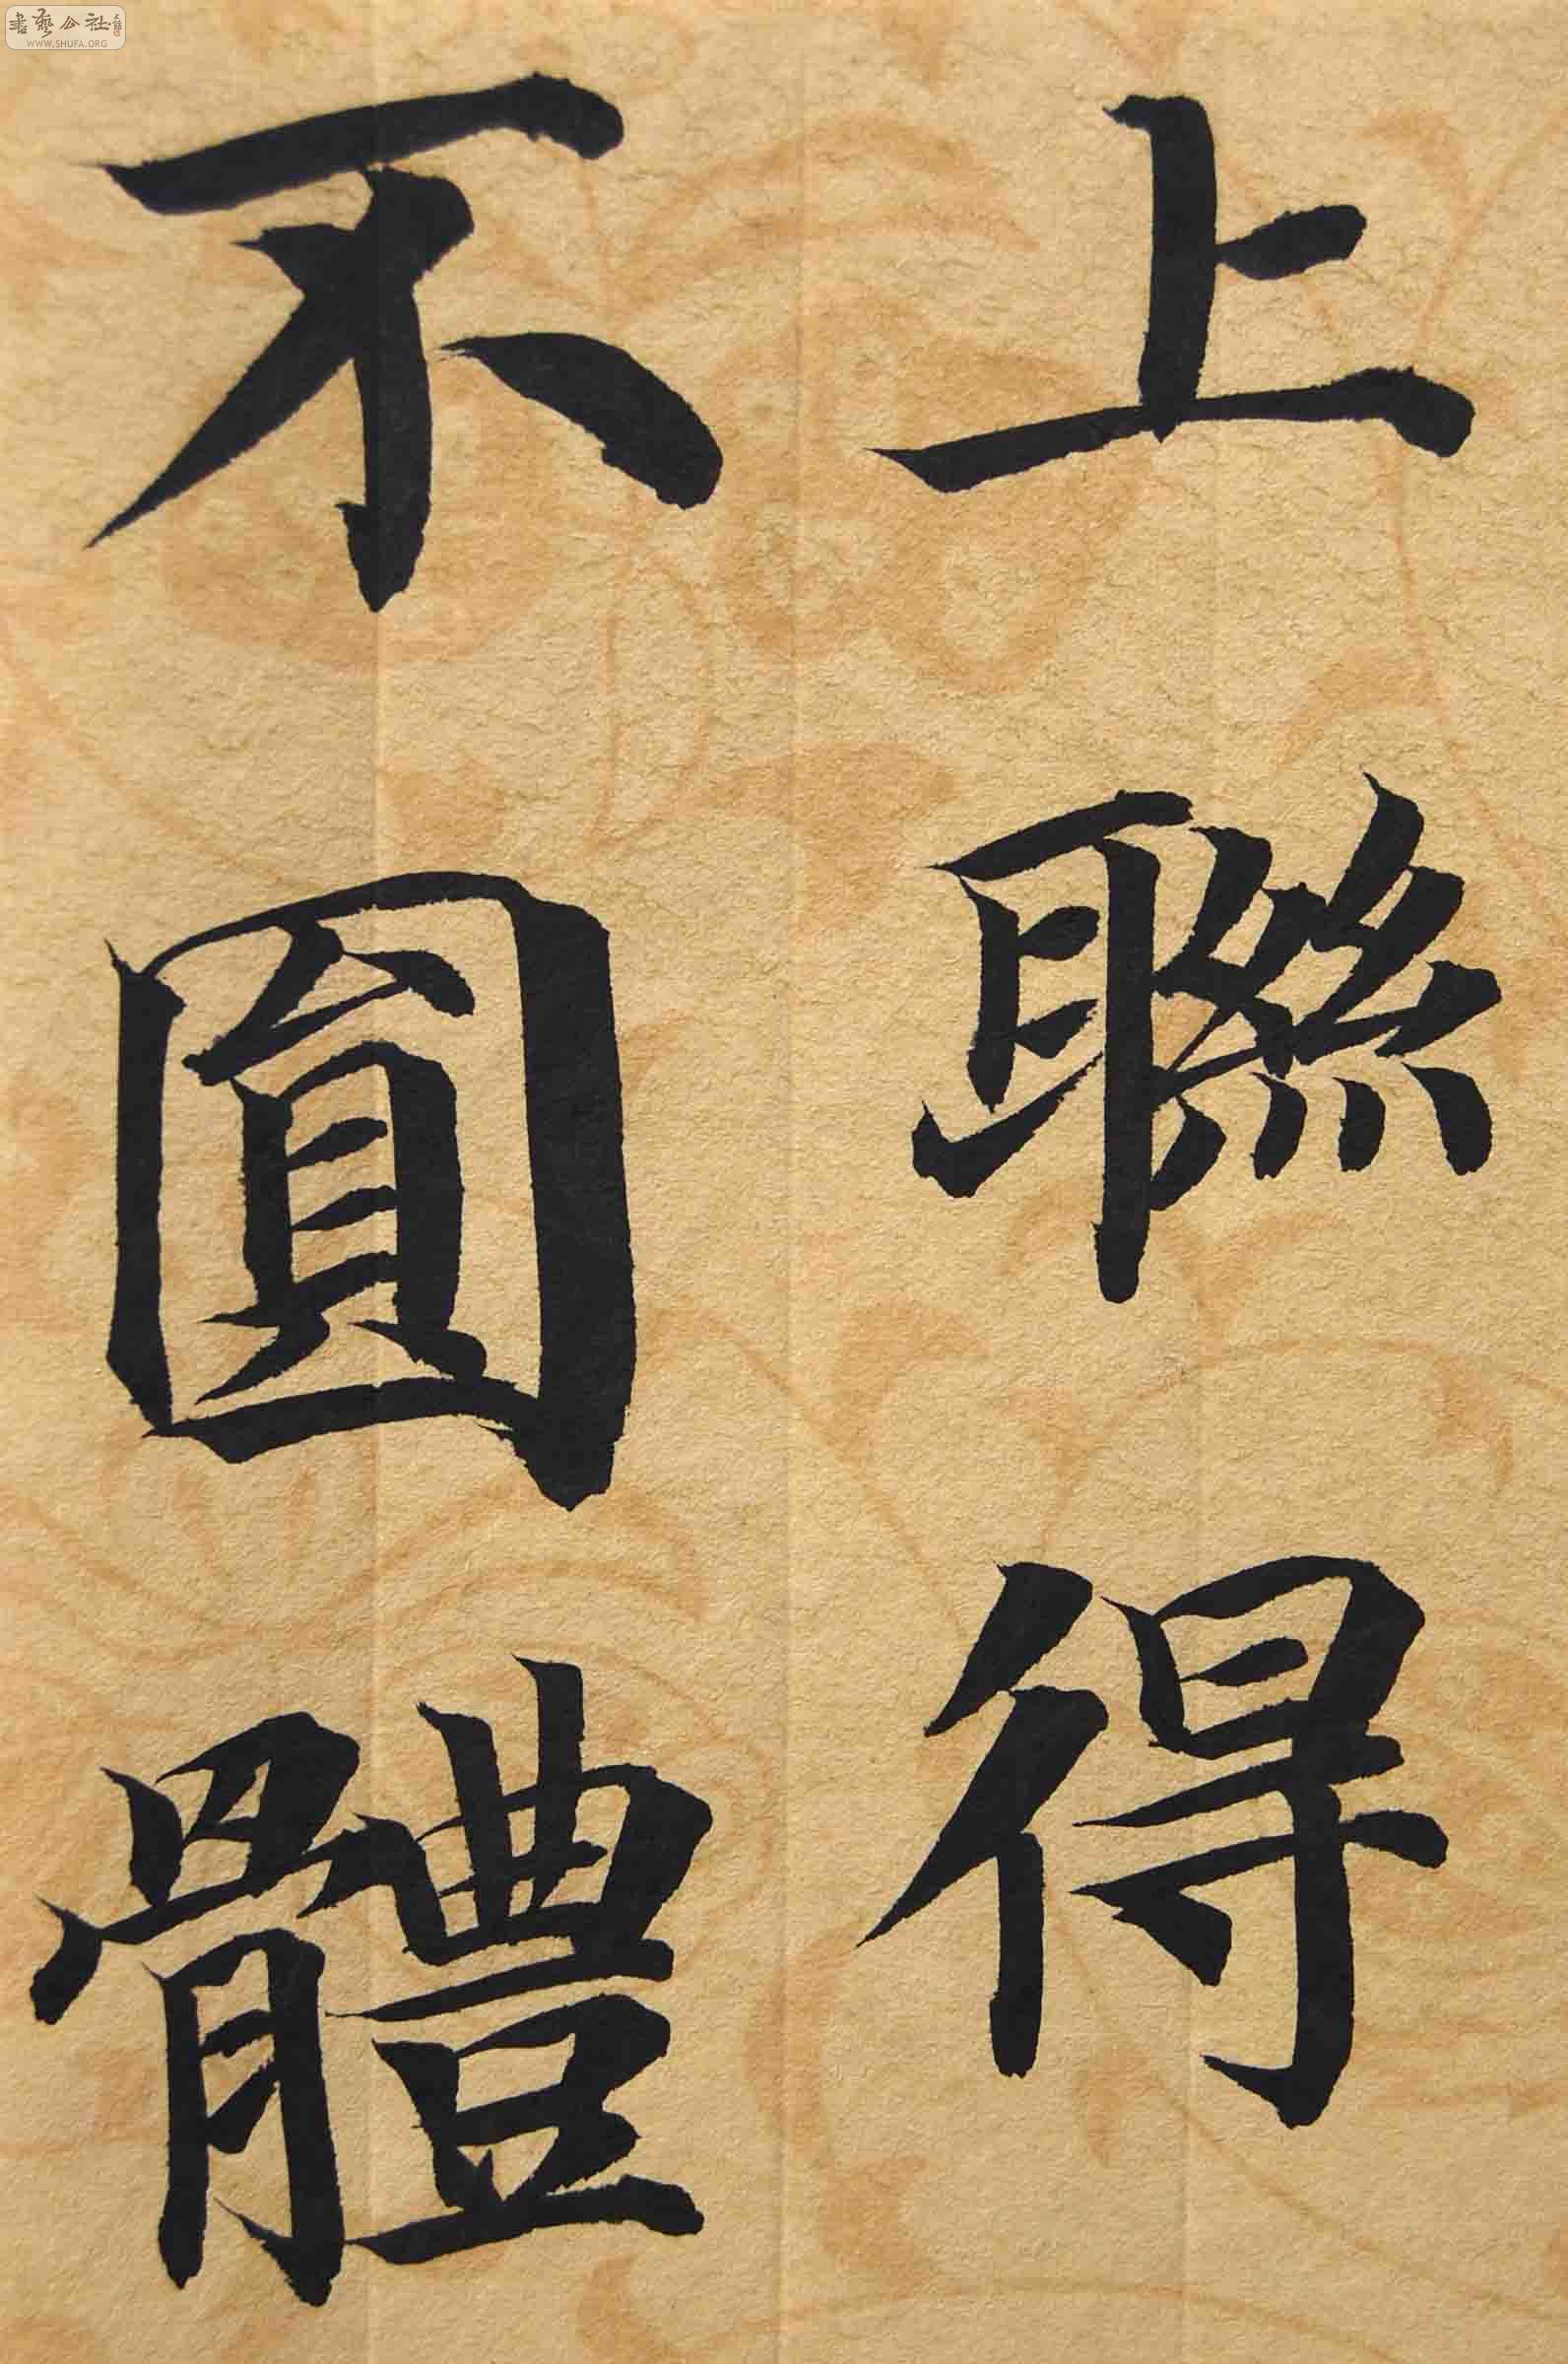 上聯得
不圓體
書藝公社
WWW.SHUFA.ORG